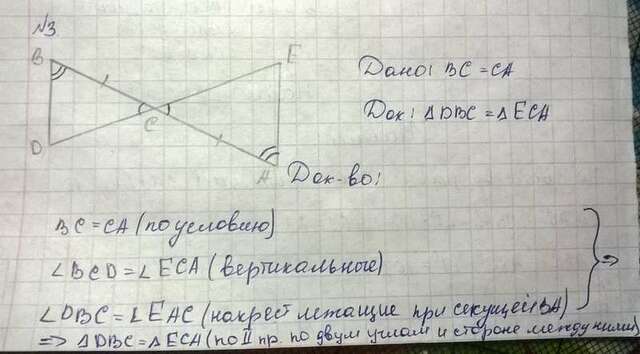 №3
B
E
Дано: BC = CA
Док: ΔDBC = ΔECA
C
D
A
Док-во:
BC = CA (по условию)
∠BCD = ∠ECA (вертикальные)
∠DBC = ∠EAC (накрест лежащие при секущей BA)
⇒
⇒ ΔDBC = ΔECA (по II пр. по двум углам и стороне между ними)